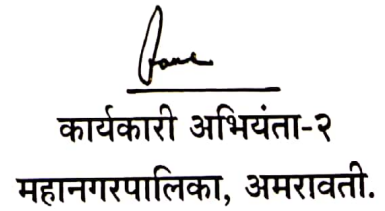 कार्यकारी अभियंता-२
महानगरपालिका, अमरावती.